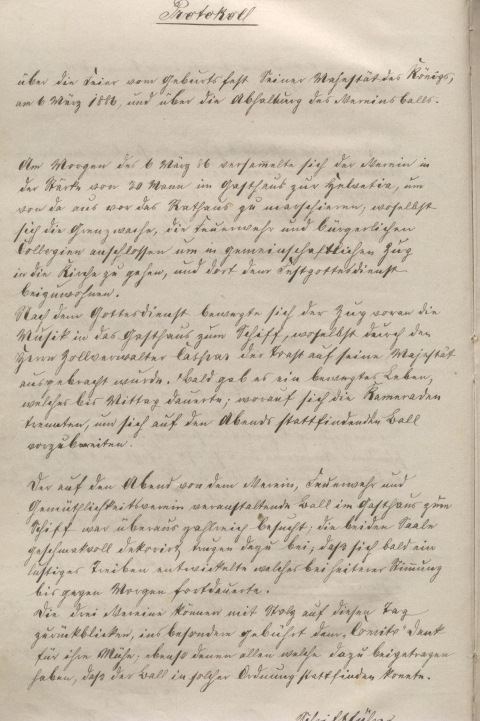 Protokoll
über die Feier vom Geburtsfest Seiner Majestät des Königs,
am 6 März 1886, und über die Abhaltung des Vereinsballs.
Am Morgen des 6 März 86 versamelte sich der Verein in
der Stärke von 20 Mann im Gasthaus zur Helvetia, um
von da aus vor das Rathaus zu marschieren, woselbst
sich die Grenzwache, die Feuerwehr und bürgerlichen
Collegien anschlossen um in gemeinschaftlichen Zug
in die Kirche zu gehen, und dort dem Festgottesdienst
beizuwohnen.
Nach dem Gottesdienst bewegte sich der Zug voran die
Musik in das Gasthaus zum Schiff, woselbst durch den
Herrn Zollverwalter der Toast auf seine Majestät
ausgebracht wurde. Bald gab es ein bewegtes Leben,
welches bis Mittag dauerte; worauf sich die Kameraden
trennten, um sich auf den Abends stattfindenden Ball
vorzubereiten.
Der auf den Abend von dem Verein, Feuerwehr und
Gemüthlichkeitsverein veranstaltende Ball im Gasthaus zum
Schiff war überaus zahlreich besucht; die beiden Saale
geschmakvoll dekorirt trugen dazu bei, daß sich bald ein
lustiges Treiben entwickelte welches bei heiterer Stimung
bis gegen Morgen fortdauerte.
Die drei Vereine können mit Stolz auf diesen Tag
zurückblicken, ins besondere gebührt dem "Comite" Dank
für ihre Mühe; ebenso denen allen welche dazu beigetragen
haben, daß der Ball in solcher Ordnung stattfinden konnte.
Schriftführer